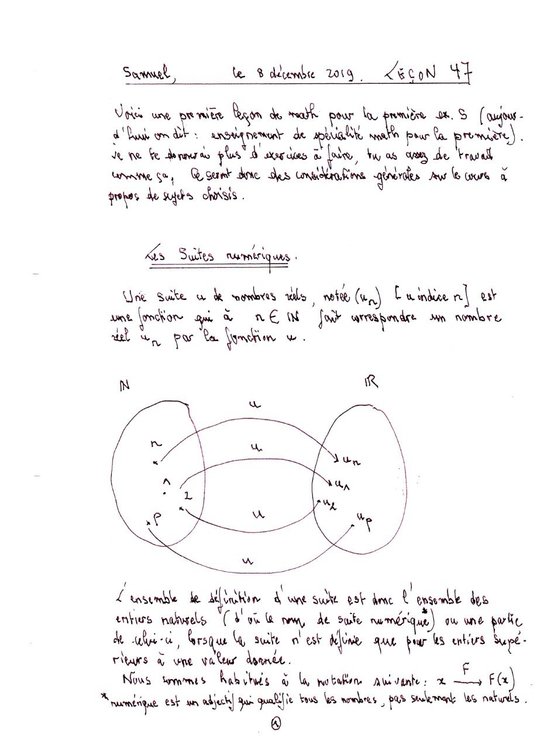 Samuel, le 8 décembre 2019. LEÇON 47
Voici une première leçon de math pour la première ex. S (aujour-
d'hui on dit : enseignement de spécialité math pour la première).
Je ne te donnerai plus d'exercices à faire, tu as assez de travail
comme ça. Ce seront donc des considérations générales sur le cours à
propos de sujets choisis.
Les Suites numériques.
Une suite u de nombres réels, notée (uₙ) [u indice n] est
une fonction qui à n ∈ ℕ fait correspondre un nombre
réel uₙ par la fonction u.
ℕ ℝ
u
n uₙ
u
1 u₁
2 u₂
u
p uₚ
u
L'ensemble de définition d'une suite est donc l'ensemble des
entiers naturels (d'où le nom de suite numérique*) ou une partie
de celui-ci, lorsque la suite n'est définie que pour les entiers supé-
rieurs à une valeur donnée.
Nous sommes habitués à la notation suivante : x F→ F(x)
* numérique est un adjectif qui qualifie tous les nombres, pas seulement les naturels.
1